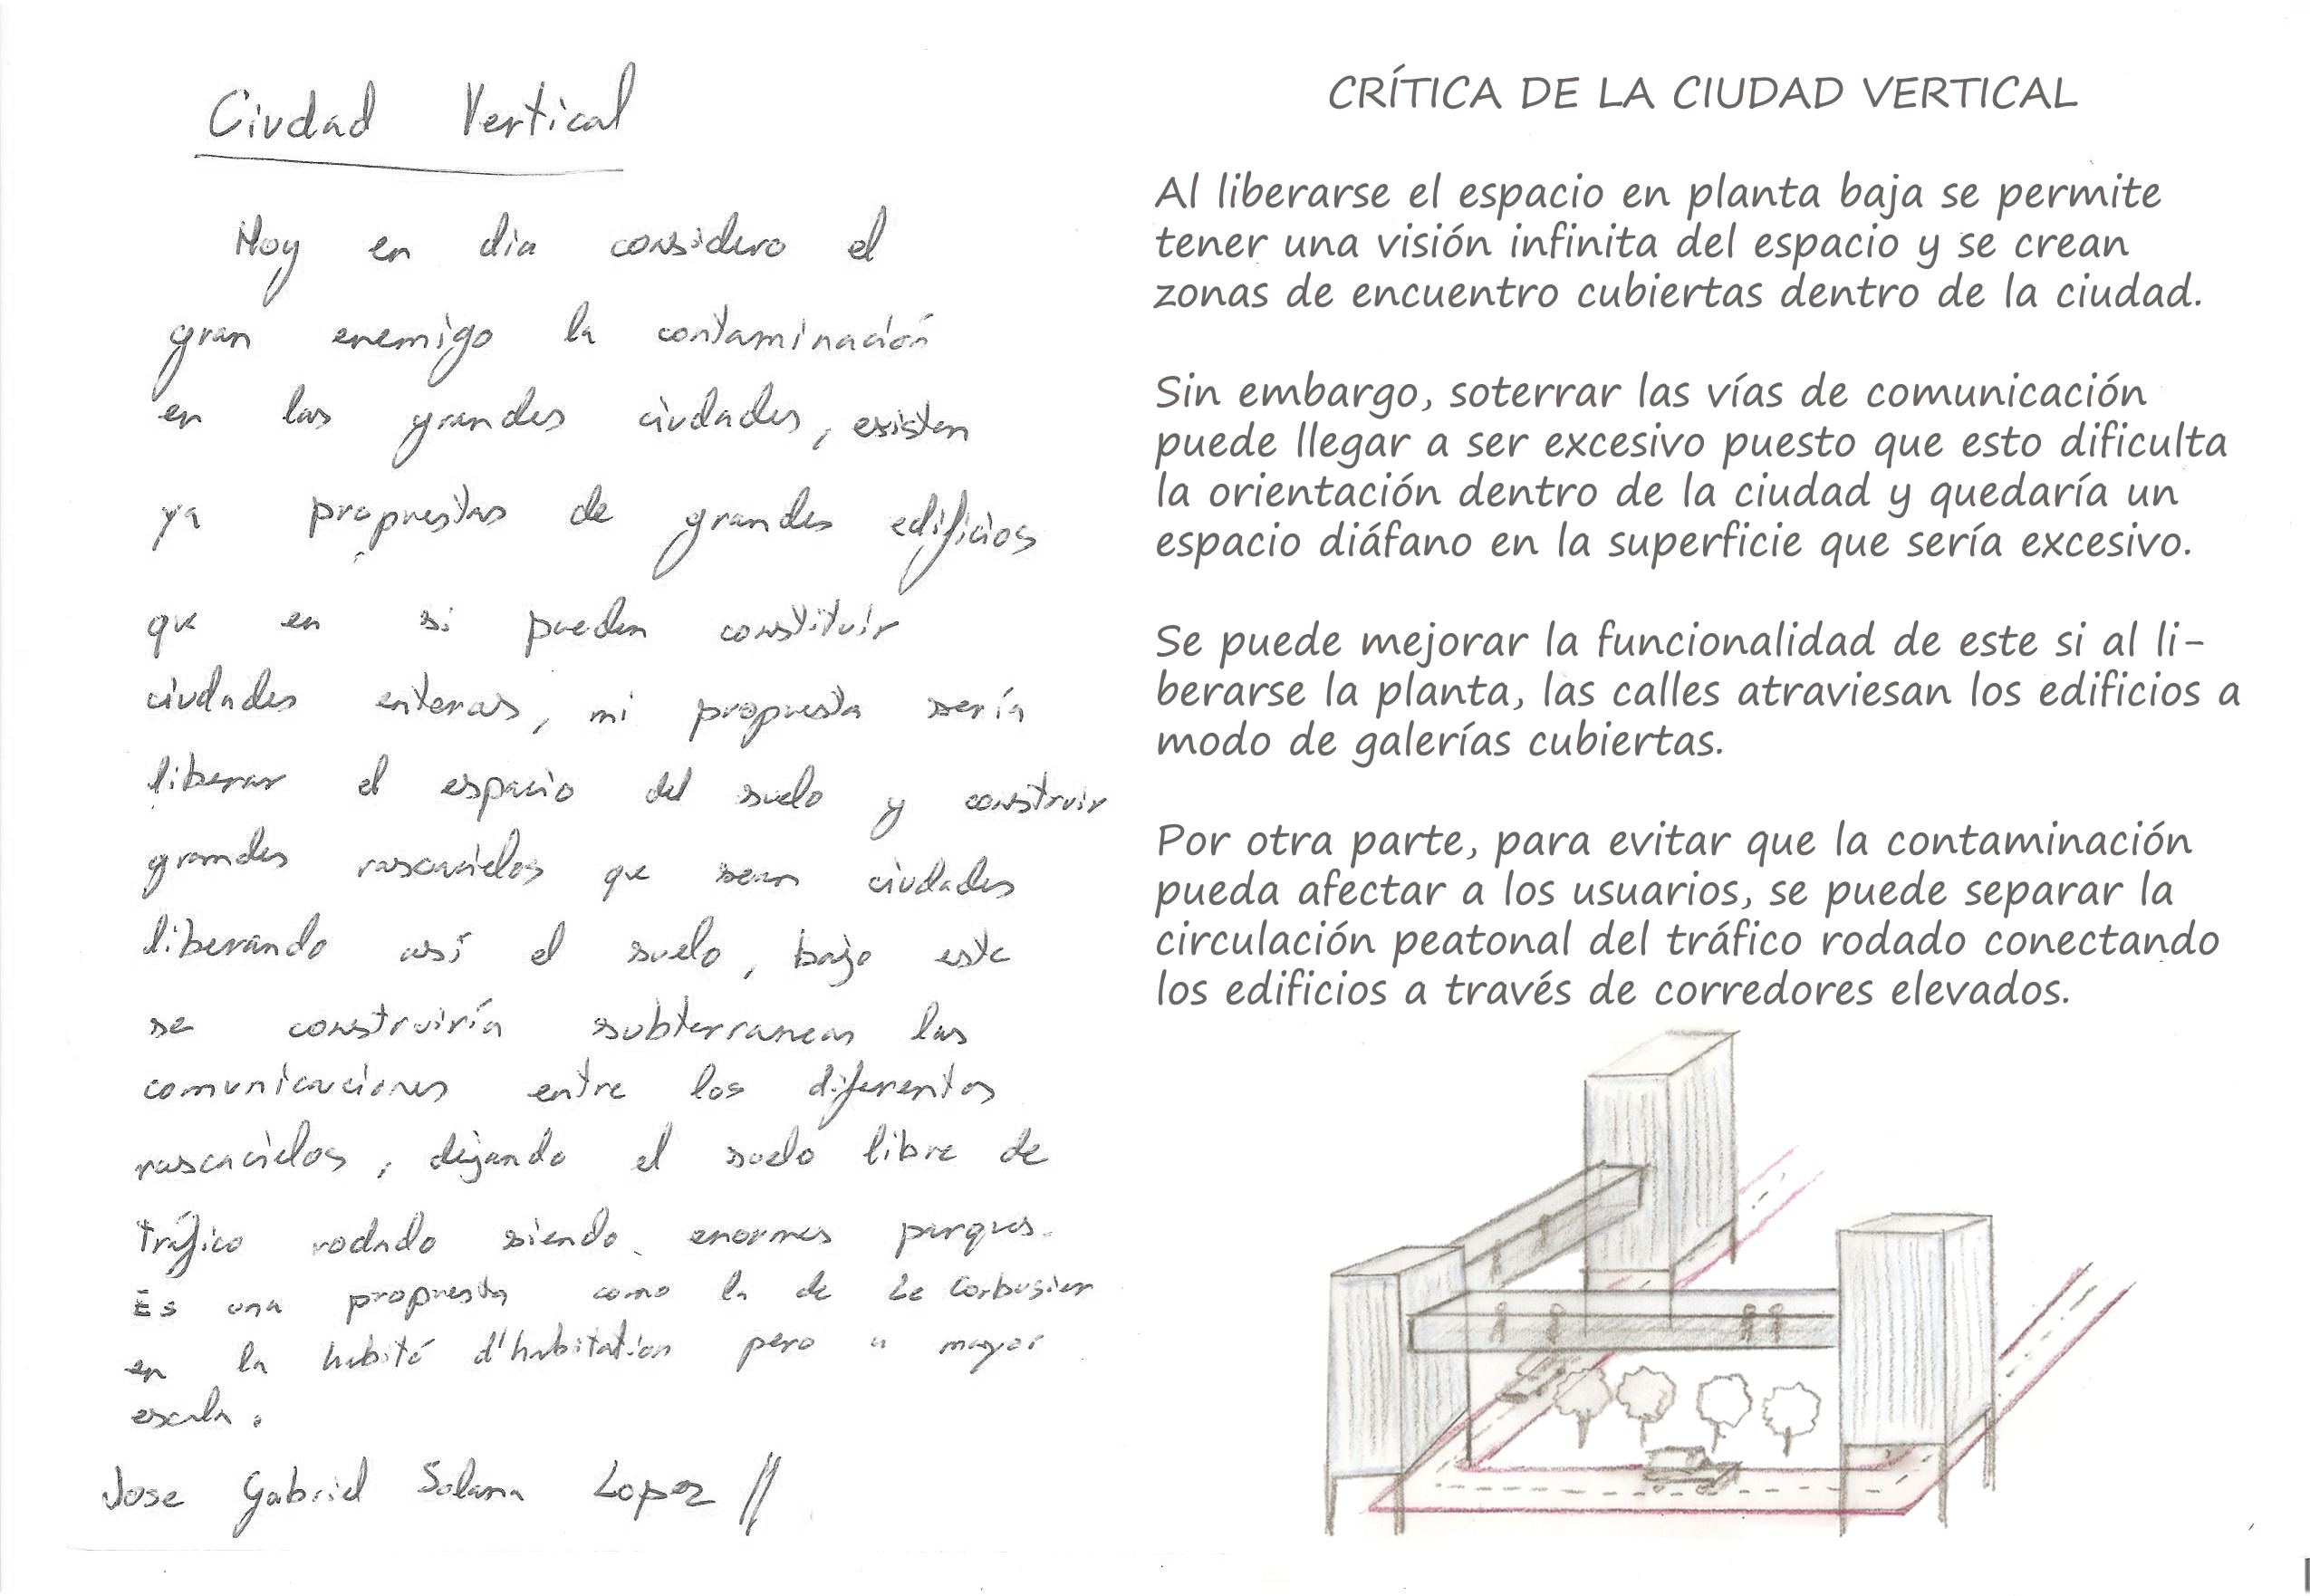 Ciudad Vertical
Hoy en dia considero el
gran enemigo la contaminación
en las grandes ciudades, existen
ya propuestas de grandes edificios
que en si pueden constituir
ciudades enteras, mi propuesta sería
liberar el espacio del suelo y construir
grandes rascacielos que sean ciudades
liberando así el suelo, bajo este
se construiría subterraneas las
comunicaciones entre los diferentes
rascacielos, dejando el suelo libre de
tráfico rodado siendo enormes parques.
Es una propuesta como la de Le Corbusier
en la habité d'habitation pero a mayor
escala.
Jose Gabriel Solana Lopez //
CRÍTICA DE LA CIUDAD VERTICAL
Al liberarse el espacio en planta baja se permite
tener una visión infinita del espacio y se crean
zonas de encuentro cubiertas dentro de la ciudad.
Sin embargo, soterrar las vías de comunicación
puede llegar a ser excesivo puesto que esto dificulta
la orientación dentro de la ciudad y quedaría un
espacio diáfano en la superficie que sería excesivo.
Se puede mejorar la funcionalidad de este si al li-
berarse la planta, las calles atraviesan los edificios a
modo de galerías cubiertas.
Por otra parte, para evitar que la contaminación
pueda afectar a los usuarios, se puede separar la
circulación peatonal del tráfico rodado conectando
los edificios a través de corredores elevados.